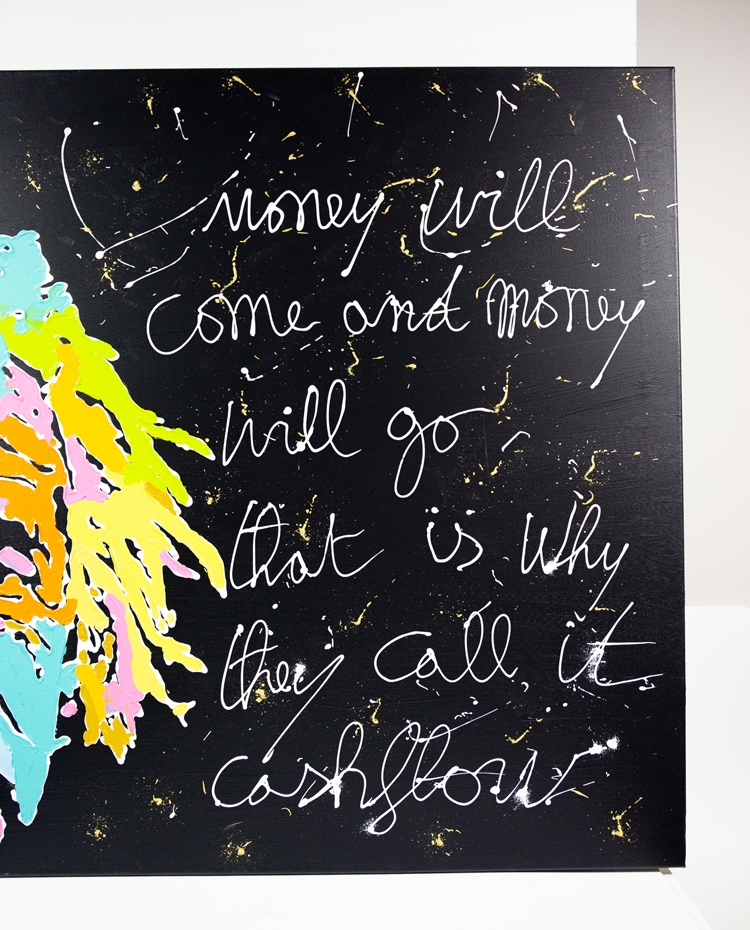 money will
come and money
will go
that is why
they call it
cashflow